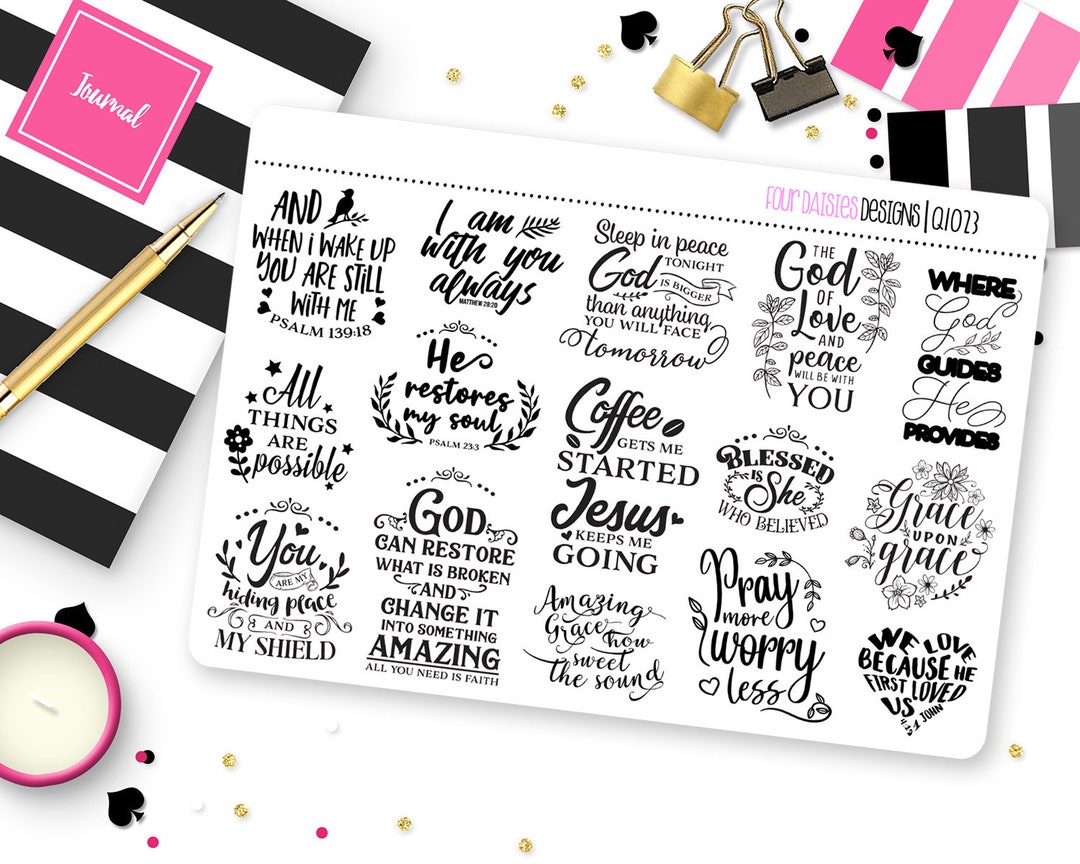 Journal
FOUR DAISIES DESIGNS | Q1073
AND
WHEN i WAKE UP
YOU ARE STILL
WITH ME
PSALM 139:18
I am
with you
always
MATTHEW 28:20
Sleep in peace
TONIGHT
God IS BIGGER
than anything
YOU WILL FACE
tomorrow
THE
God
OF
Love
AND
peace
WILL BE WITH
YOU
WHERE
God
GUIDES
He
PROVIDES
All
THINGS
ARE
possible
He
restores
my soul
PSALM 23:3
Coffee
GETS ME
STARTED
Jesus
KEEPS ME
GOING
BLESSED
IS
She
WHO BELIEVED
Grace
UPON
grace
You
ARE MY
hiding place
AND
MY SHIELD
GOD
CAN RESTORE
WHAT IS BROKEN
AND
CHANGE IT
INTO SOMETHING
AMAZING
ALL YOU NEED IS FAITH
Amazing
Grace how
sweet
the sound
Pray
more
worry
less
WE LOVE
BECAUSE HE
FIRST LOVED
US
1 JOHN